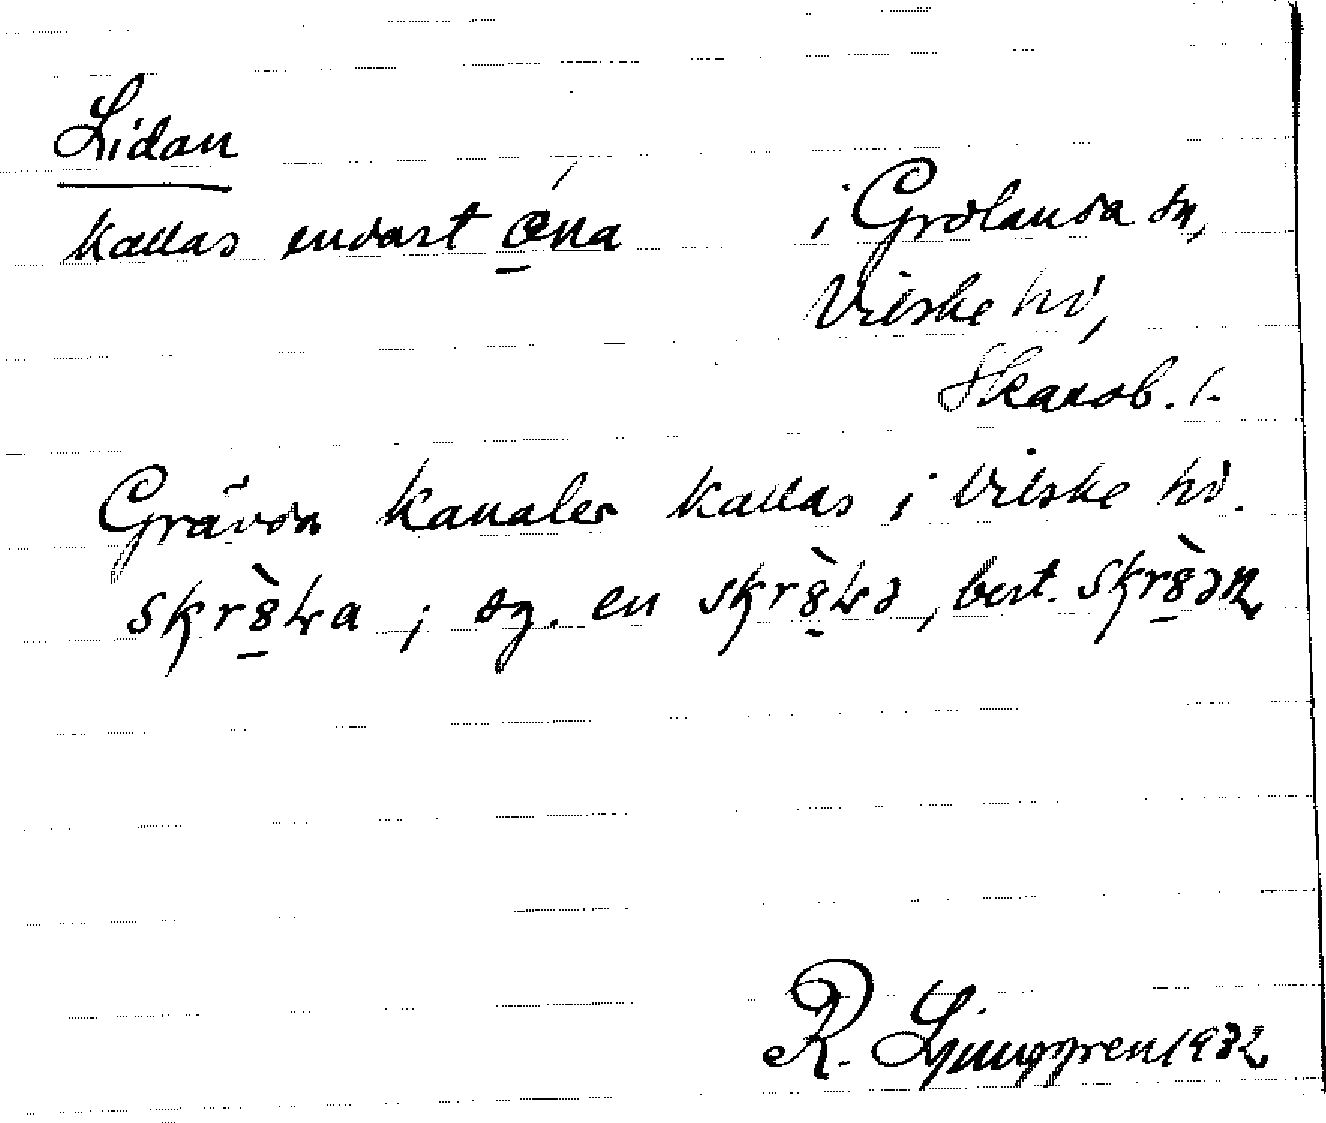 Lidan
kallas endast œ́na i Grolanda sn,
Vilske hd,
Skarab. l.
Grävda kanaler kallas i Vilske hd.
skr8̀ka ; sg. en skr8̀kə, best. skr8̀ən
R. Ljunggren 1932